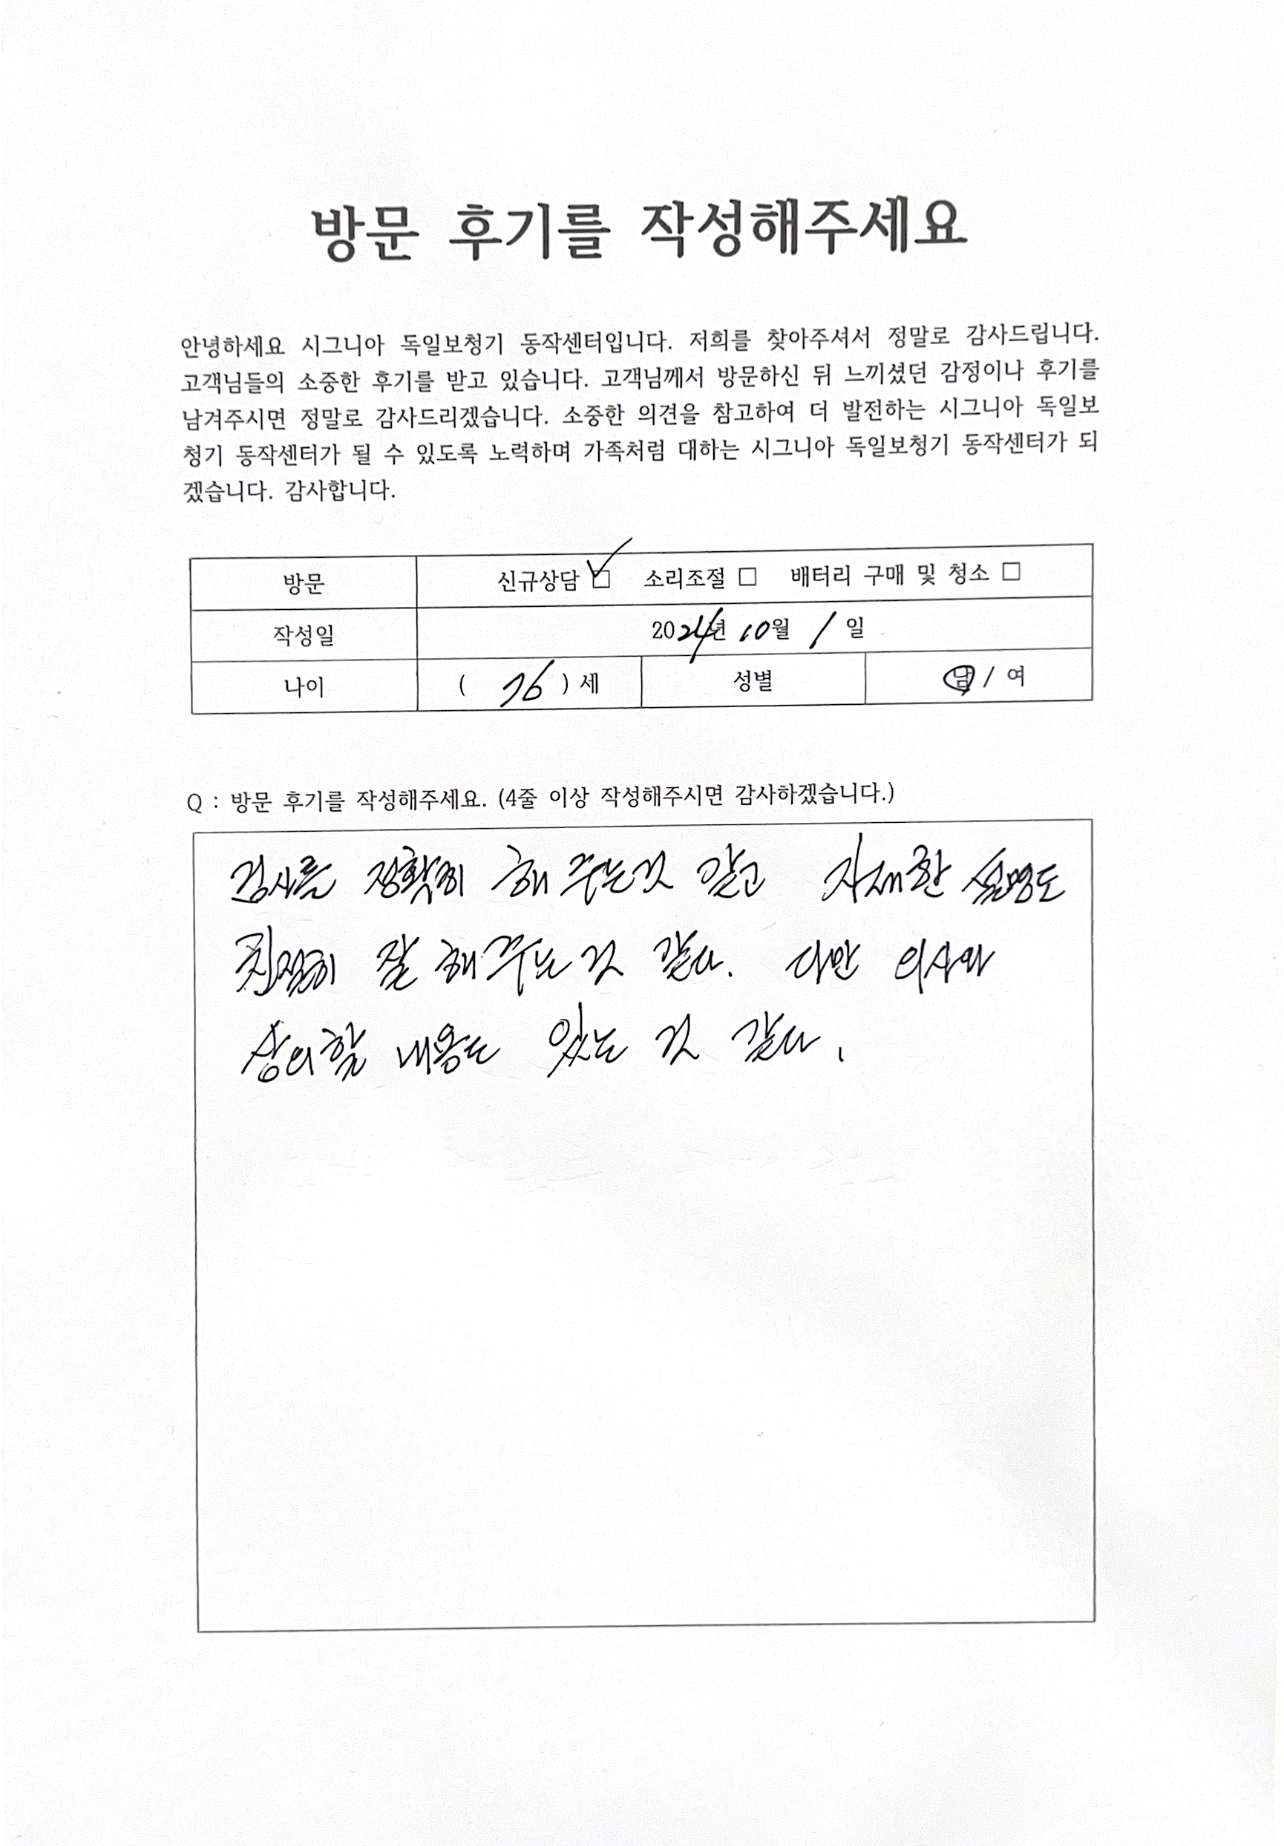 방문 후기를 작성해주세요
안녕하세요 시그니아 독일보청기 동작센터입니다. 저희를 찾아주셔서 정말로 감사드립니다.
고객님들의 소중한 후기를 받고 있습니다. 고객님께서 방문하신 뒤 느끼셨던 감정이나 후기를
남겨주시면 정말로 감사드리겠습니다. 소중한 의견을 참고하여 더 발전하는 시그니아 독일보
청기 동작센터가 될 수 있도록 노력하며 가족처럼 대하는 시그니아 독일보청기 동작센터가 되
겠습니다. 감사합니다.
방문 신규상담 ☑ 소리조절 □ 배터리 구매 및 청소 □
작성일 2024년 10월 1일
나이 ( 76 ) 세 성별 남 / 여
Q : 방문 후기를 작성해주세요. (4줄 이상 작성해주시면 감사하겠습니다.)
검사를 정확히 해 주는것 같고 자세한 설명도
친절히 잘 해주는 것 같다. 다만 의사와
상의할 내용도 있는 것 같다.